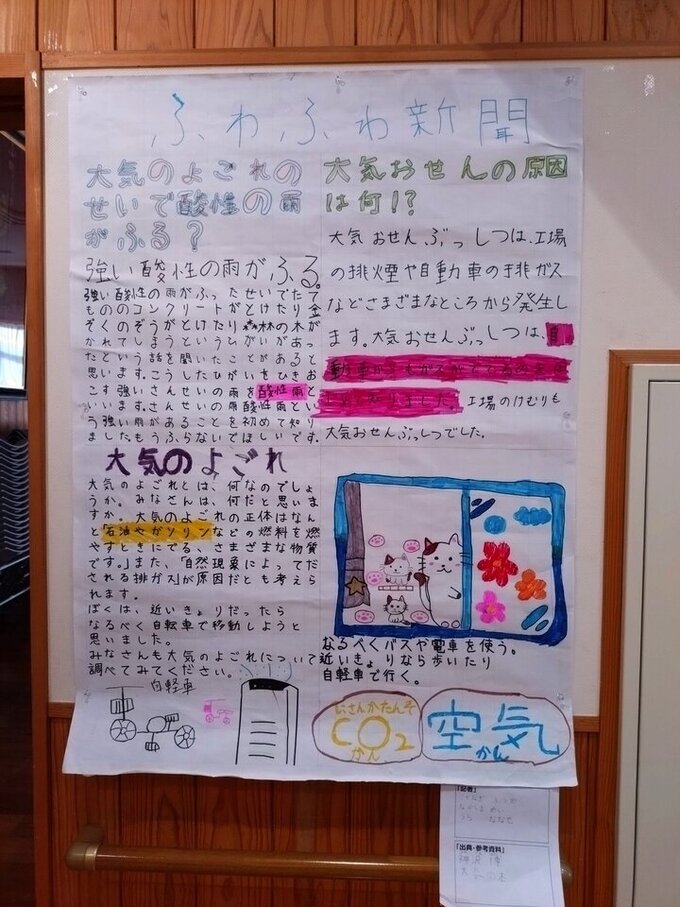 ふわふわ新聞
大気のよごれの
せいで酸性の雨
がふる?
強い酸性の雨がふる。
強い酸性の雨がふったせいでたて
もののコンクリートがとけたり金
ぞくのぞうがとけたり森林の木が
かれてしまうというひがいがあっ
たという話を聞いたことがあると
思います。こうしたひがいをひきお
こす強いさんせいの雨を酸性雨と
いいます。さんせいの雨酸性雨とい
う強い雨があることを初めて知り
ましたもうふらないでほしいです。
大気おせんの原因
は何!?
大気おせんぶっしつは、工場
の排煙や自動車の排ガス
などさまざまなところから発生し
ます。大気おせんぶっしつは、自
動車から
なりました。工場のけむりも
大気おせんぶっしつでした。
大気のよごれ
大気のよごれとは、何なのでしょ
うか。みなさんは、何だと思いま
すか。大気のよごれの正体はなん
と「石油やガソリンなどの燃料を燃
やすときにでる、さまざまな物質
です。」また、「自然現象によってだ
される排ガス」が原因だとも考えら
れます。
ぼくは、近いきょりだったら
なるべく自転車で移動しようと
思いました。
みなさんも大気のよごれについて
調べてみてください。
なるべくバスや電車を使う。
近いきょりなら歩いたり
自軽車で行く。
自軽車
にさんかたんそ
CO2
かん
空気
かん
「記者」
「出典・参考資料」